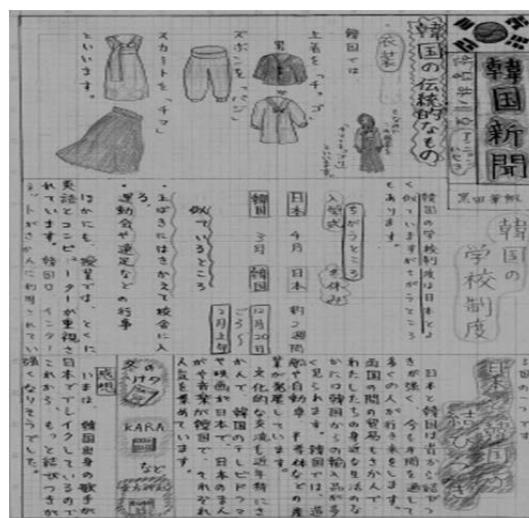 韓国新聞
韓国の伝統的なもの
衣装
韓国では
上着を「チョゴリ」
ズボンを「パジ」
スカートを「チマ」
といいます。
韓国の
学校制度
韓国の学校制度は日本とよ
く似ていますがちがうところ
もあります。
ちがうところ
入学式
日本 4月
韓国 3月
冬休み
日本 約2週間
韓国 12月20日
ごろ〜
2月上旬
似ているところ
・上ばきにはきかえて校舎に入
る。
・運動会や遠足などの行事
ほかにも、授業では、とくに
英語とコンピューターが重視さ
れています。韓国は、インター
ネットがさかんに利用されてい
日本と韓国の
結びつき
日本と韓国は昔から結びつ
きが強く、今も年間を通して
多くの人が行き来をします。
両国の間の貿易もさかんで、
わたしたちの身近な生活のな
かには韓国からの輸入品が多
く見られます。韓国では、造
船や自動車、半導体などの産
業が発展しています。
文化的な交流も近年特にさ
かんで、韓国のテレビドラマ
や映画が日本で、日本のまん
がや音楽が韓国で、それぞれ
人気を集めています。
冬の
KARA
など
感想
いまは、韓国出身の歌手が
日本でブレイクしているので
これから、もっと結びつきが
強くなりそうでした。